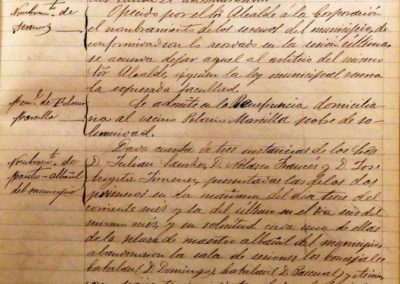 Nombramto. de
serenos
Ofrecido por el Sr. Alcalde á la Corporación
el nombramiento de los serenos del municipio, de
conformidad con lo acordado en la sesión última
se acuerda dejar aquel al arbitrio del mismo
Sr. Alcalde, quien la ley municipal
la expresada facultad.
Se admite en la Beneficencia domicilia-
ria al vecino Marcilla pobre de so-
lemnidad.
Marcilla
Nombramto. de
perito-albañil
del municipio
Dada cuenta de tres instancias de los Sres.
D. Julian Sanchez, D. Francés y D. José
Jimenez, presentadas las de los dos
primeros en la mañana del dia trece del
corriente mes y la del último en el dia
mismo mes, y en solicitud cada uno de ellos
de la plaza de maestro albañil del municipio,
abandonaron la sala de sesiones los concejales
Catalan (D. Domingo), Catalan (D. Pascual) y